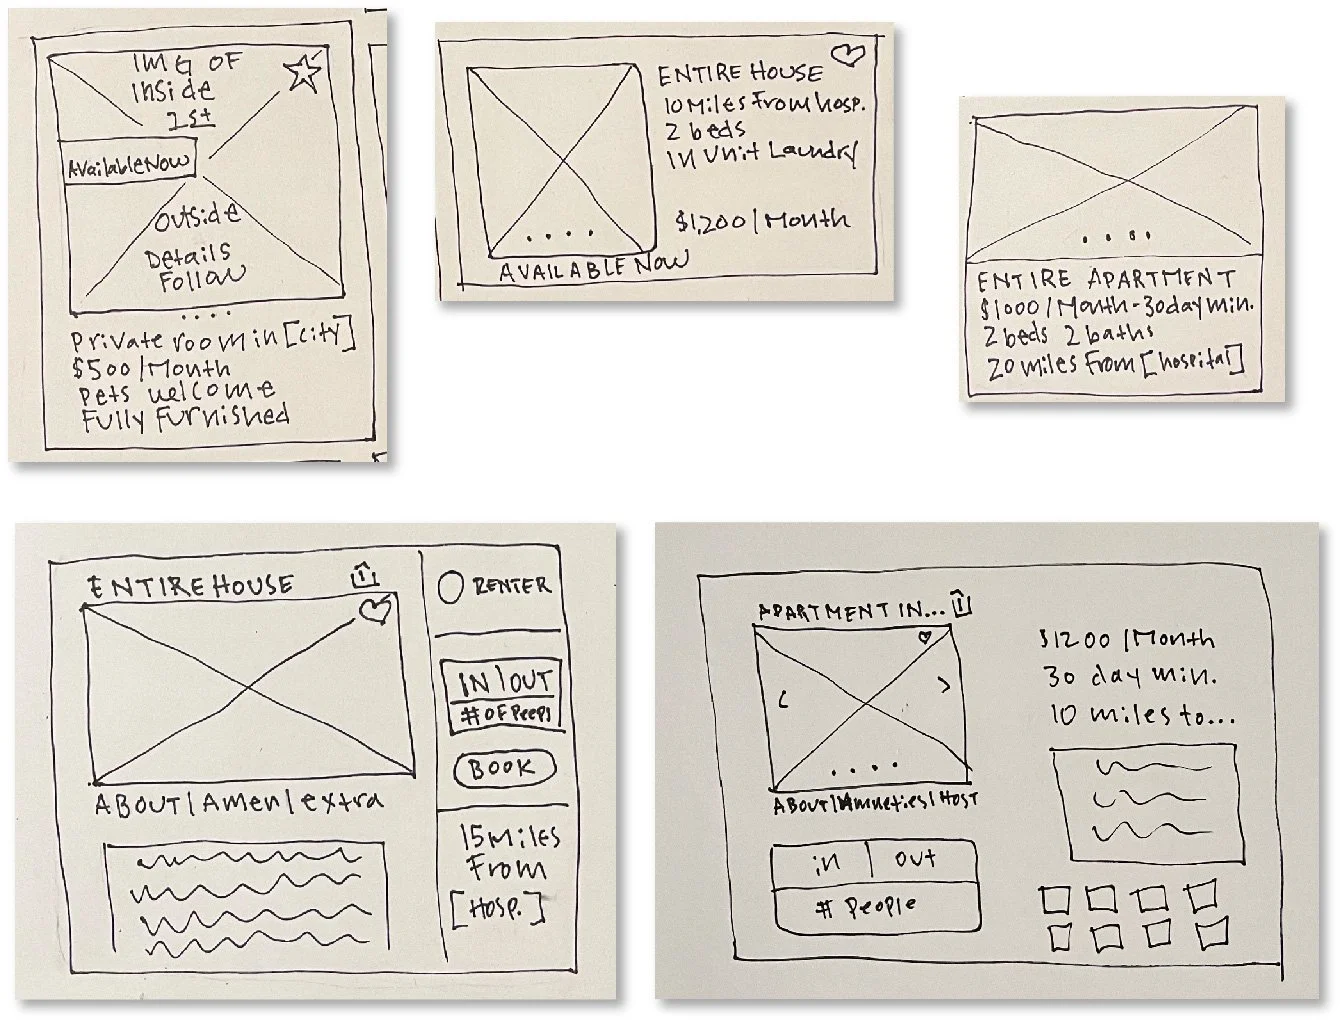 IMG OF
Inside
1st
Available Now
Outside
Details
Follow
Private room in [city]
$500/Month
Pets welcome
Fully Furnished
ENTIRE HOUSE
10 Miles From hosp.
2 beds
IN Unit Laundry
$1,200/Month
AVAILABLE NOW
ENTIRE APARTMENT
$1000/Month-30day min.
2 beds 2 baths
20 miles From [hospital]
ENTIRE HOUSE
ABOUT/Amen/extra
RENTER
IN/OUT
# OF Peeps
BOOK
15 Miles
From
[Hosp.]
APARTMENT IN...
ABOUT/Amneties/HOST
in out
# People
$1200/Month
30 day min.
10 miles to...